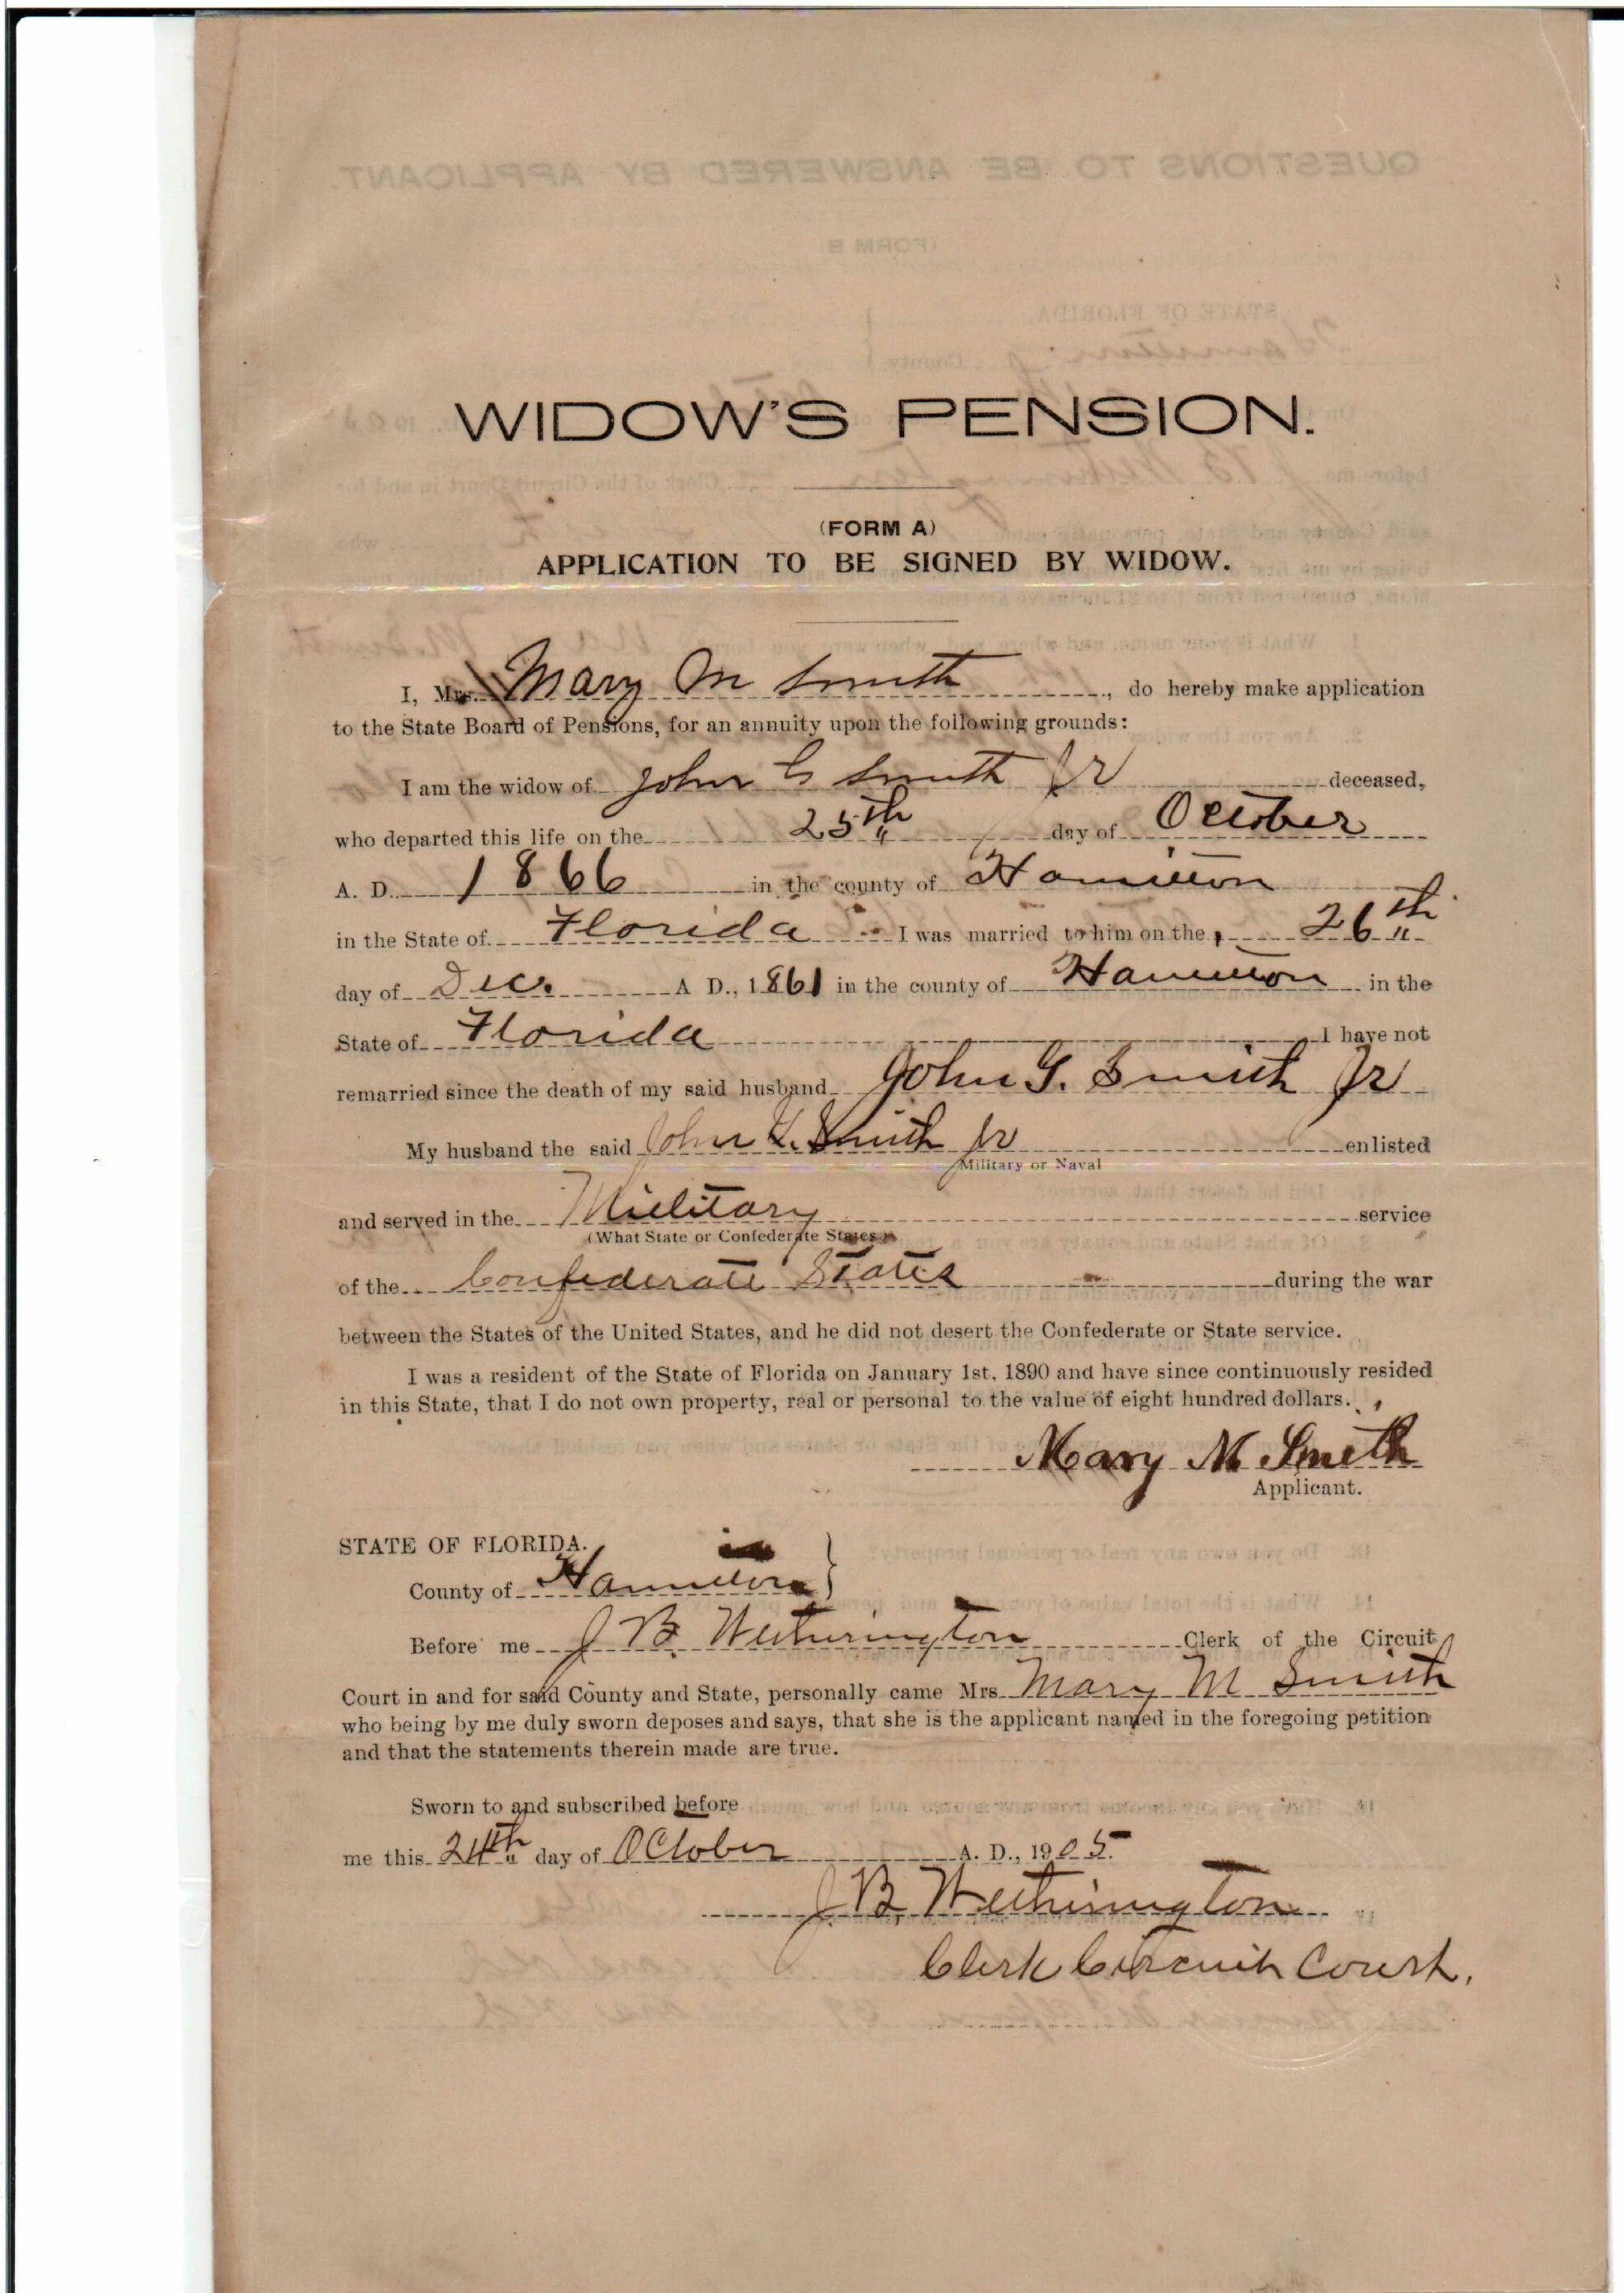 WIDOW'S PENSION.
(FORM A)
APPLICATION TO BE SIGNED BY WIDOW.
I, Mrs. Mary M Smith, do hereby make application
to the State Board of Pensions, for an annuity upon the following grounds:
I am the widow of John G Smith Jr deceased,
who departed this life on the 25th day of October
A. D. 1866 in the county of Hamilton
in the State of Florida I was married to him on the 26th
day of Dec. A D., 1861 in the county of Hamilton in the
State of Florida I have not
remarried since the death of my said husband John G. Smith Jr
My husband the said John G. Smith Jr enlisted
Military or Naval
and served in the Military service
(What State or Confederate States)
of the Confederate States during the war
between the States of the United States, and he did not desert the Confederate or State service.
I was a resident of the State of Florida on January 1st, 1890 and have since continuously resided
in this State, that I do not own property, real or personal to the value of eight hundred dollars.
Mary M Smith
Applicant.
STATE OF FLORIDA.
County of Hamilton }
Before me J B. Wetherington Clerk of the Circuit
Court in and for said County and State, personally came Mrs Mary M Smith
who being by me duly sworn deposes and says, that she is the applicant named in the foregoing petition
and that the statements therein made are true.
Sworn to and subscribed before
me this 24th day of October A. D., 1905.
J. B. Wetherington
Clerk Circuit Court.